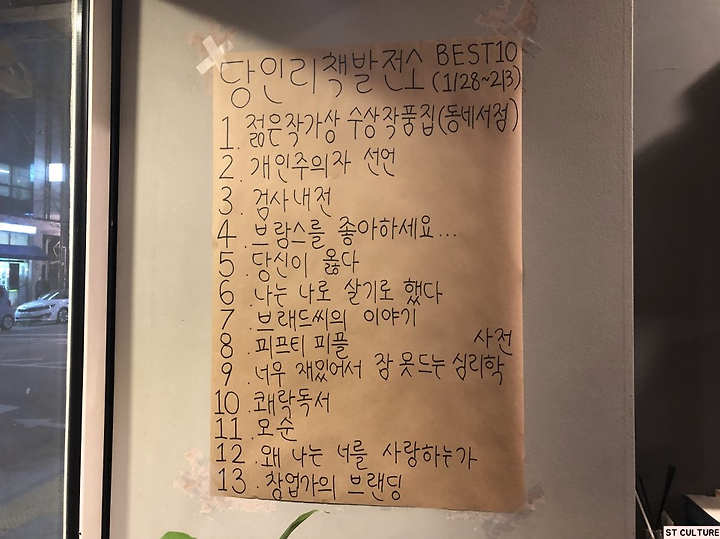 당인리책발전소 BEST10
(1/28~2/3)
1. 젊은작가상 수상작품집(동네서점)
2. 개인주의자 선언
3. 검사내전
4. 브람스를 좋아하세요...
5. 당신이 옳다
6. 나는 나로 살기로 했다
7. 브랜드씨의 이야기
8. 피프티 피플
사전
9. 너무 재밌어서 잠 못드는 심리학
10. 쾌락독서
11. 모순
12. 왜 나는 너를 사랑하는가
13. 창업가의 브랜딩
ST CULTURE